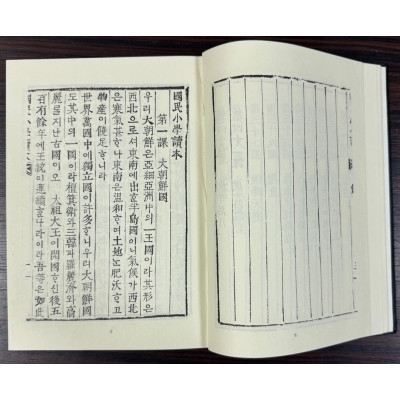 國民小學讀本
第一課 大朝鮮國
우리大朝鮮은亞細亞洲中의一王國이라其形은
西北으로셔東南에出ᄒᆞᆫ半島國이니氣候가西北
은寒氣甚ᄒᆞ나東南은溫和ᄒᆞ며土地ᄂᆞᆫ肥沃ᄒᆞ고
物産이饒足ᄒᆞ니라
世界萬國中에獨立國이許多ᄒᆞ니우리大朝鮮國
도其中의一國이라檀箕衛와三韓과羅麗濟와高
麗ᄅᆞᆯ지난古國이오 太祖大王이開國ᄒᆞ신後五
百有餘年에王統이連續ᄒᆞᆫ나라이라吾等은如此